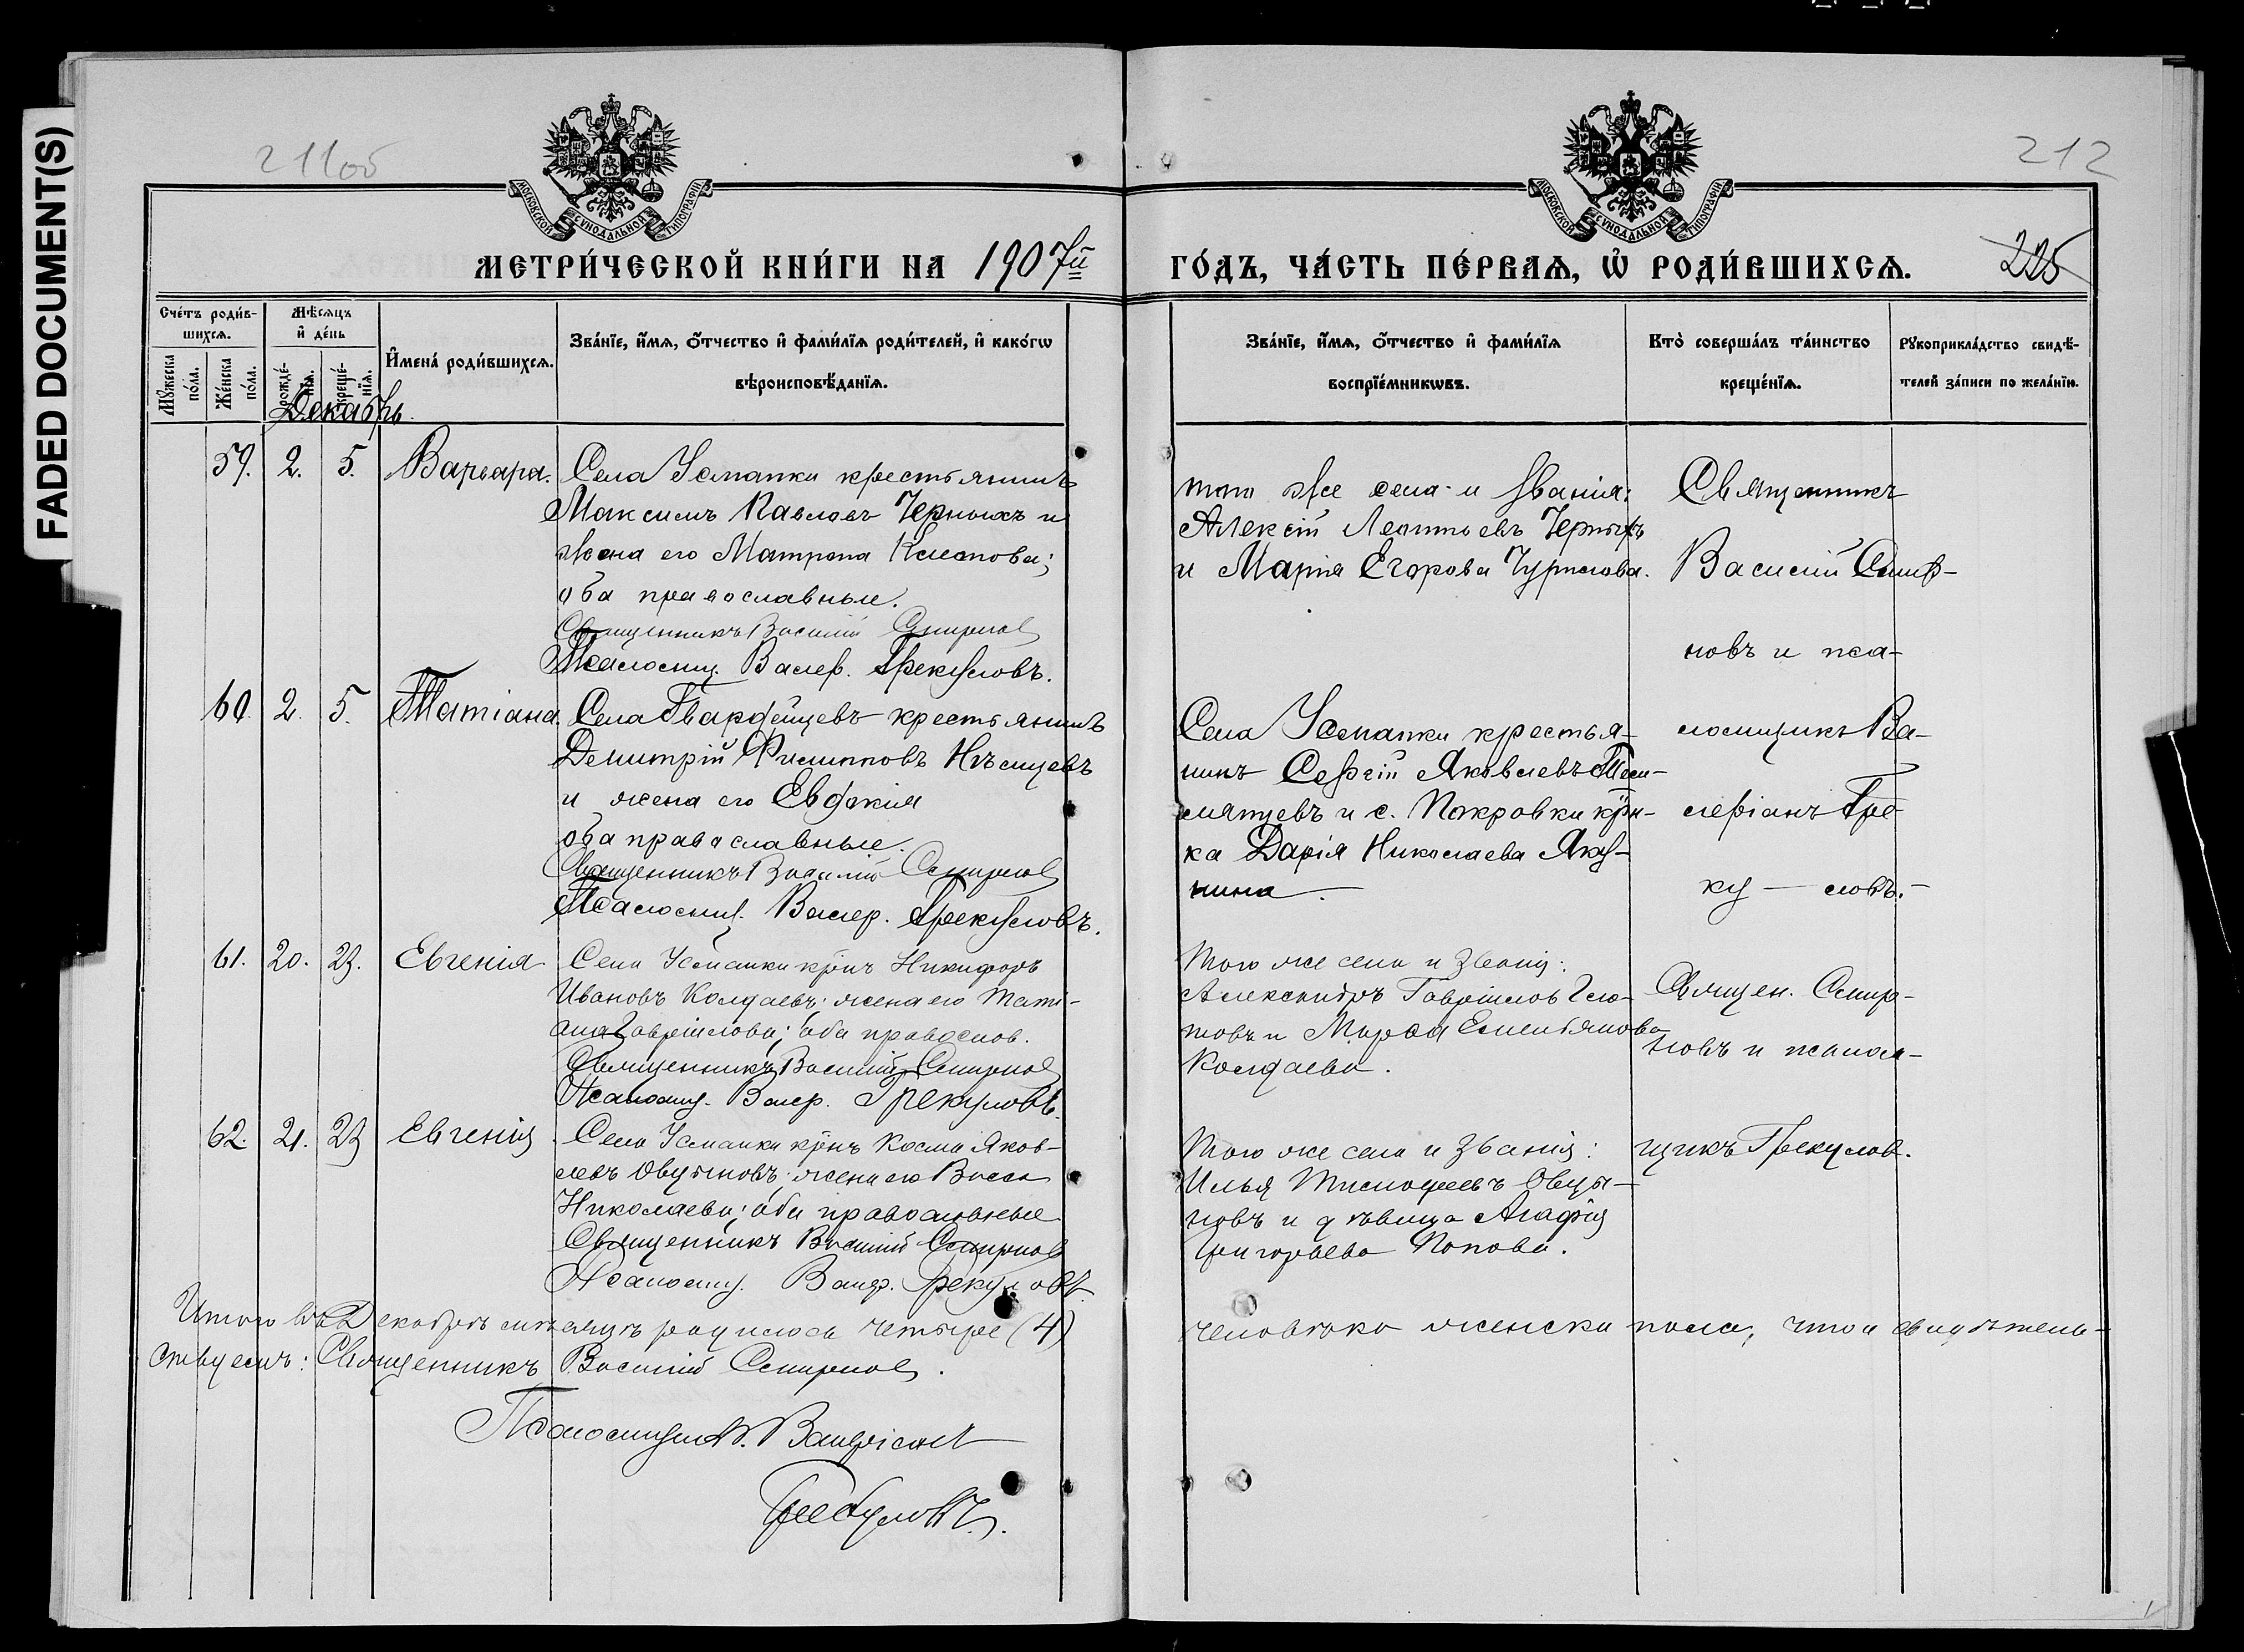 FADED DOCUMENT(S)
211об
212
МОСКОВСКОЙ СУНОДАЛЬНОЙ ТИПОГРАФІИ
МОСКОВСКОЙ СУНОДАЛЬНОЙ ТИПОГРАФІИ
МЕТРИ́ЧЕСКОЙ КНИ́ГИ НА 1907й
ГО́ДЪ, ЧА́СТЬ ПЕ́РВАѦ, Ѡ҆ РОДИ́ВШИХСѦ.
225
Сче́тъ роди́в-
шихсѧ.
Мꙋ́жеска по́ла.
Же́нска по́ла.
Мѣ́сѧцъ
и҆ де́нь
рожде́-нїѧ.
креще́-нїѧ.
И҆мена̀ роди́вшихсѧ.
Зва́нїе, и҆́мѧ, ѻ҆́тчество и҆ фамі́лїѧ роди́телей, и҆ како́гѡ
вѣроисповѣ́данїѧ.
Зва́нїе, и҆́мѧ, ѻ҆́тчество и҆ фамі́лїѧ
воспрїе́мникѡвъ.
Кто̀ соверша́лъ та́инство
креще́нїѧ.
Рꙋкоприкла́дство свидѣ́-
телей за́писи по жела́нїю.
Декабрь.
59. 2. 5. Варвара. Села Усманки крестьянинъ
Максимъ Павловъ Черныхъ и
жена его Матрона
оба православные.
Священникъ Василій Смирнов
Псаломщ. Валер. Грекуловъ.
того же села и званія:
Алексій Леонтьевъ Черныхъ
и Марія Егорова Чурилова.
Священникъ
Василій Смир-
новъ и пса-
60. 2. 5. Татіана. Села Гвардейцевъ крестьянинъ
Димитрій Филипповъ
и жена его Евдокія
оба православные.
Священникъ Василій Смирнов
Псаломщ. Валер. Грекуловъ.
Села Усманки крестья-
нинъ Сергій Яковлевъ
и с. Покровки кр-
ка Дарія Николаева Яку-
нина.
ломщикъ Ва-
леріанъ Гре-
ку — ловъ.
61. 20. 23. Евгенія Села Усманки кр-нъ Никифоръ
Ивановъ Колдаевъ; жена его Тати-
ана Гавріилова; оба правослов.
Священникъ Василій Смирнов
Псаломщ. Валер. Грекуловъ.
Того же села и званія:
Александръ Гавріилов
и Марѳа Емельянова
Колдаева.
Священ. Смир-
новъ и псалом-
62. 21. 23 Евгенія Села Усманки кр-нъ Косма Яков-
левъ Овцыновъ; жена его Васса
Николаева; оба православные
Священникъ Василій Смирнов
Псаломщ. Валер. Грекуловъ.
Того же села и званія:
Илья Тимофеевъ Овцы-
новъ и дѣвица Агафія
Григорьева Попова.
щикъ Грекулов.
Итого въ Декабрѣ мѣсяцѣ родилось четыре (4)
человѣка женска пола, что и свидѣтель-
ствуемъ: Священникъ Василій Смирнов.
Псаломщикъ Валеріанъ
Грекуловъ.